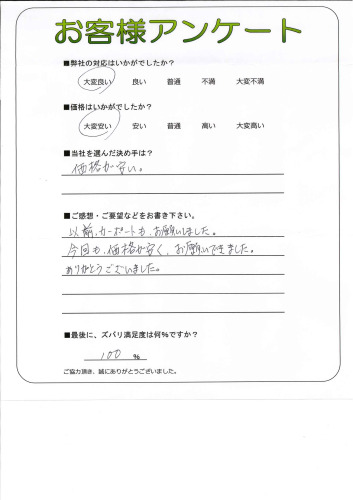 お客様アンケート
■弊社の対応はいかがでしたか?
大変良い 良い 普通 不満 大変不満
■価格はいかがでしたか?
大変安い 安い 普通 高い 大変高い
■当社を選んだ決め手は?
価格が安い。
■ご感想・ご要望などをお書き下さい。
以前、カーポートも、お願いしました。
今回も、価格が安く、お願いできました。
ありがとうございました。
■最後に、ズバリ満足度は何%ですか?
100 %
ご協力頂き、誠にありがとうございました。